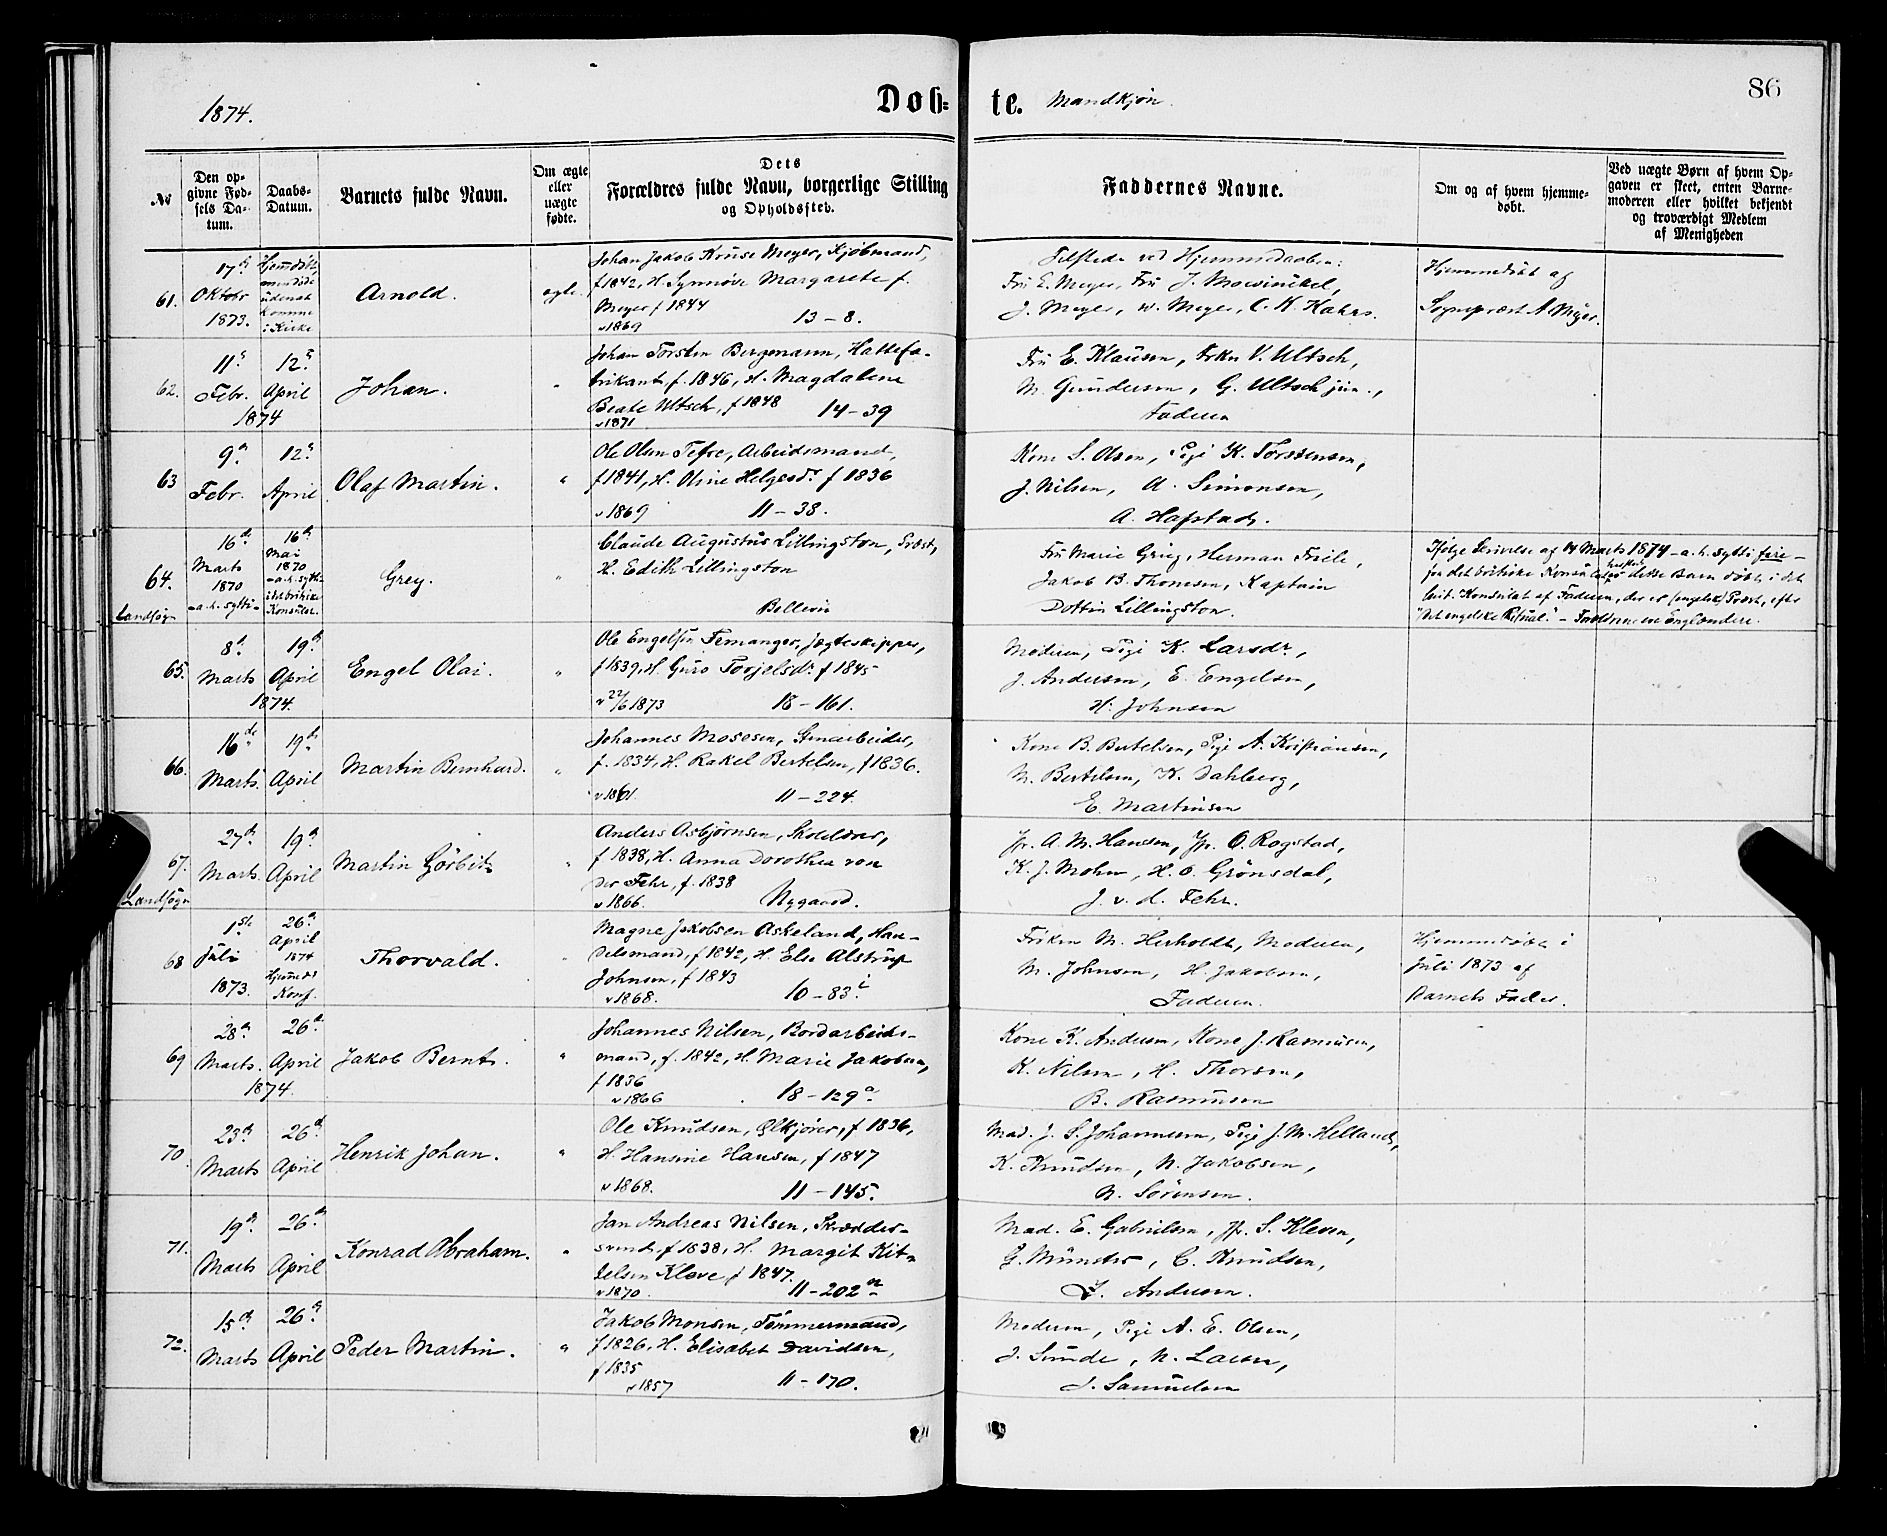 1874.
Døb=
te.
Mandkjøn.
86
№
Den op-
givne Fød-
sels Da-
tum.
Daabs-
Datum.
Barnets fulde Navn.
Om ægte
eller
uægte
fødte.
Dets
Forældres fulde Navn, borgerlige Stilling
og Opholdssted.
Faddernes Navne.
Om og af hvem hjemme-
døbt.
Ved uægte Børn af hvem Op-
gaven er skeet, enten Barne-
moderen eller hvilket bekjendt
og troværdigt Medlem
af Menigheden
61.
17de
Oktobr
1873.
Hjemdøbt,
men døde
uden at
komme
i Kirke
Arnold.
ægte.
Johan Jakob Kruse Meyer, Kjøbmand,
f 1842, H. Synnøve Margarete f.
Meyer f 1844
v 1869 13 – 8.
Tilstede ved Hjemmedaaben:
Fru E. Meyer, Fru J. Mowinckel,
J. Meyer, W. Meyer, C. K. Kahrs.
Hjemmedøbt af
Sognepræst A. Meyer.
62.
11te
Febr.
1874
12te
April
Johan.
"
Johan Torsten Bergemann, Hattefa-
brikant, f. 1846, H. Magdalene
Beate Ultsch, f 1848 14 – 39
v 1871
Fru E. Klausen, Frkn V. Ultsch,
M. Gundersen, G. Ultsch jun.,
Faderen
63
9de
Febr.
12te
April
Olaf Martin.
"
Ole Olsen Tefre, Arbeidsmand,
f 1841, H. Oline Helgesdr f 1836
v 1869 11 – 38.
Kone S. Olsen, Pige K. Torstensen,
J. Nilsen, A. Simonsen,
A. Hafstad.
64.
Landsogn
16de
Marts
1870
– a. h. sytti –
16de
Mai
1870
– a. h. sytti
i det britiske
Konsulat.
Grey.
"
Claude Augustus Lillingston, Præst,
H. Edith Lillingston
Bellevü
Fru Marie Grieg, Herman Friele,
Jakob B. Thomsen, Kaptain
Dottin Lillingston.
Ifølge Skrivelse af 14 Marts 1874 – a. h. sytti fire –
fra det britiske Konsulat dette Barn døbt i det
brit. Konsulat af Faderen, der er (engelsk) Præst, efter
"det engelske Ritual". – Forældrene ere Englændere.
65.
8de
Marts
1874.
19de
April
Engel Olai.
"
Ole Engelsen Femanger, Jægteskipper,
f 1839, H. Guro Torjelsdr f 1845
v 22/6 1873 18 – 161.
Moderen, Pige K. Larsdr,
J. Andersen, E. Engelsen,
H. Johnsen
66.
16de
Marts
19de
April
Martin Bernhard.
"
Johannes Mosesen, Stenarbeider,
f. 1834, H. Rakel Bertelsen, f 1836.
v 1861. 11 – 224.
Kone B. Bertelsen, Pige A. Kristiansen,
M. Bertelsen, K. Dahlberg,
E. Martinsen
67.
Landsogn
27de
Marts.
19de
April
Martin Görbitz
"
Anders Asbjørnsen, Skolelærer,
f 1838, H. Anna Dorothea von
der Fehr, f. 1838
v 1866. Nygaard.
Jfr. A. M. Hansen, Jfr. O. Rogstad,
K. J. Mohn, H. O. Grönsdal,
J. v. d. Fehr.
68
1ste
Juli
1873.
26de
April
1874
Hjemmed.
Konf.
Thorvald.
"
Magne Jakobsen Askeland, Han-
delsmand, f 1842, H. Else Alstrup
Johnsen, f 1843
v 1868. 10 – 83 i
Frøken M. Herholdt, Moderen,
M. Johnsen, H. Jakobsen,
Faderen.
Hjemmedøbt i
Juli 1873 af
Barnets Fader.
69
28de
Marts.
1874.
26de
April
Jakob Bernt.
"
Johannes Nilsen, Bordarbeids-
mand, f. 1842, H. Marie Jakobsen,
f 1836
v 1866 18 – 129 a
Kone K. Andersen, Kone J. Rasmusen,
K. Nilsen, H. Thorsen,
B. Rasmusen
70.
23de
Marts
26de
April
Henrik Johan.
"
Ole Knudsen, Ølkjører, f 1836,
H. Hansine Hansen, f 1847
v 1868. 11 – 145.
Mad. J. S. Johannesen, Pige J. M. Helland,
K. Knudsen, N. Jakobsen,
N. Sørensen.
71.
19de
Marts
26de
April
Konrad Abraham.
"
Jan Andreas Nilsen, Skrædder-
svend, f 1838, H. Margit Kit-
telsen Kleve f 1847.
v 1870. 11 – 202
Mad. E. Gabrielsen, Jfr. S. Kleven,
G. Münster, C. Knudsen,
Andersen.
72.
15de
Marts
26de
April
Peder Martin.
"
Jakob Monsen, Tømmermand,
f 1826, H. Elisabet Davidsen,
f 1835
v 1857 11 – 170.
Moderen, Pige A. E. Olsen,
J. Sunde, N. Larsen,
J. Samuelsen